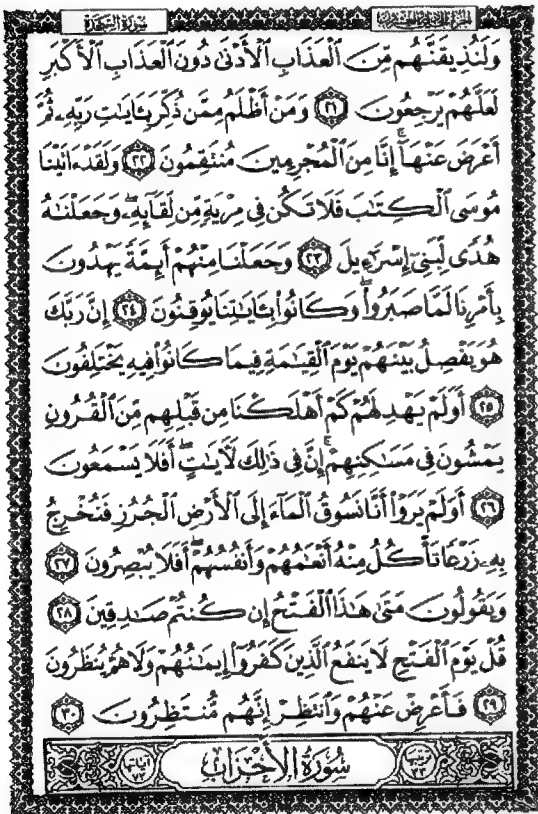 سورة السجدة
الجزء الحادي والعشرون
وَلَنُذِيقَنَّهُم مِّنَ ٱلْعَذَابِ ٱلْأَدْنَىٰ دُونَ ٱلْعَذَابِ ٱلْأَكْبَرِ
لَعَلَّهُمْ يَرْجِعُونَ ٢١ وَمَنْ أَظْلَمُ مِمَّن ذُكِّرَ بِـَٔايَـٰتِ رَبِّهِۦ ثُمَّ
أَعْرَضَ عَنْهَآ ۚ إِنَّا مِنَ ٱلْمُجْرِمِينَ مُنتَقِمُونَ ٢٢ وَلَقَدْ ءَاتَيْنَا
مُوسَى ٱلْكِتَـٰبَ فَلَا تَكُن فِى مِرْيَةٍ مِّن لِّقَآئِهِۦ ۖ وَجَعَلْنَـٰهُ
هُدًى لِّبَنِىٓ إِسْرَٰٓءِيلَ ٢٣ وَجَعَلْنَا مِنْهُمْ أَئِمَّةً يَهْدُونَ
بِأَمْرِنَا لَمَّا صَبَرُوا۟ ۖ وَكَانُوا۟ بِـَٔايَـٰتِنَا يُوقِنُونَ ٢٤ إِنَّ رَبَّكَ
هُوَ يَفْصِلُ بَيْنَهُمْ يَوْمَ ٱلْقِيَـٰمَةِ فِيمَا كَانُوا۟ فِيهِ يَخْتَلِفُونَ
٢٥ أَوَلَمْ يَهْدِ لَهُمْ كَمْ أَهْلَكْنَا مِن قَبْلِهِم مِّنَ ٱلْقُرُونِ
يَمْشُونَ فِى مَسَـٰكِنِهِمْ ۚ إِنَّ فِى ذَٰلِكَ لَـَٔايَـٰتٍ ۖ أَفَلَا يَسْمَعُونَ
٢٦ أَوَلَمْ يَرَوْا۟ أَنَّا نَسُوقُ ٱلْمَآءَ إِلَى ٱلْأَرْضِ ٱلْجُرُزِ فَنُخْرِجُ
بِهِۦ زَرْعًا تَأْكُلُ مِنْهُ أَنْعَـٰمُهُمْ وَأَنفُسُهُمْ ۖ أَفَلَا يُبْصِرُونَ ٢٧
وَيَقُولُونَ مَتَىٰ هَـٰذَا ٱلْفَتْحُ إِن كُنتُمْ صَـٰدِقِينَ ٢٨
قُلْ يَوْمَ ٱلْفَتْحِ لَا يَنفَعُ ٱلَّذِينَ كَفَرُوٓا۟ إِيمَـٰنُهُمْ وَلَا هُمْ يُنظَرُونَ
٢٩ فَأَعْرِضْ عَنْهُمْ وَٱنتَظِرْ إِنَّهُم مُّنتَظِرُونَ ٣٠
ترتيبها ٣٣ سُورَةُ الأَحْزَابِ آياتها ٧٣